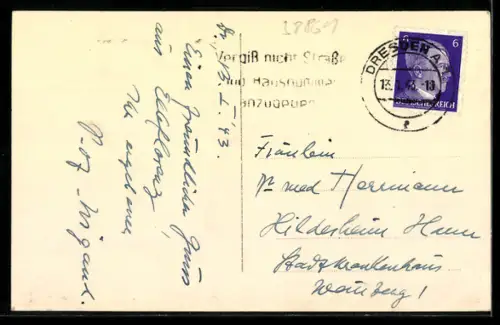 Dr. 13.I.43.
Einen freundlichen Gruss
aus
Ihr ergebener
Vergiß nicht Straße
und Hausnummer
anzugeben
DRESDEN A
13.1.43.-18
6
DEUTSCHES REICH
Fräulein
Dr med Herrmann
Hildesheim Hann
Stadtkrankenhaus